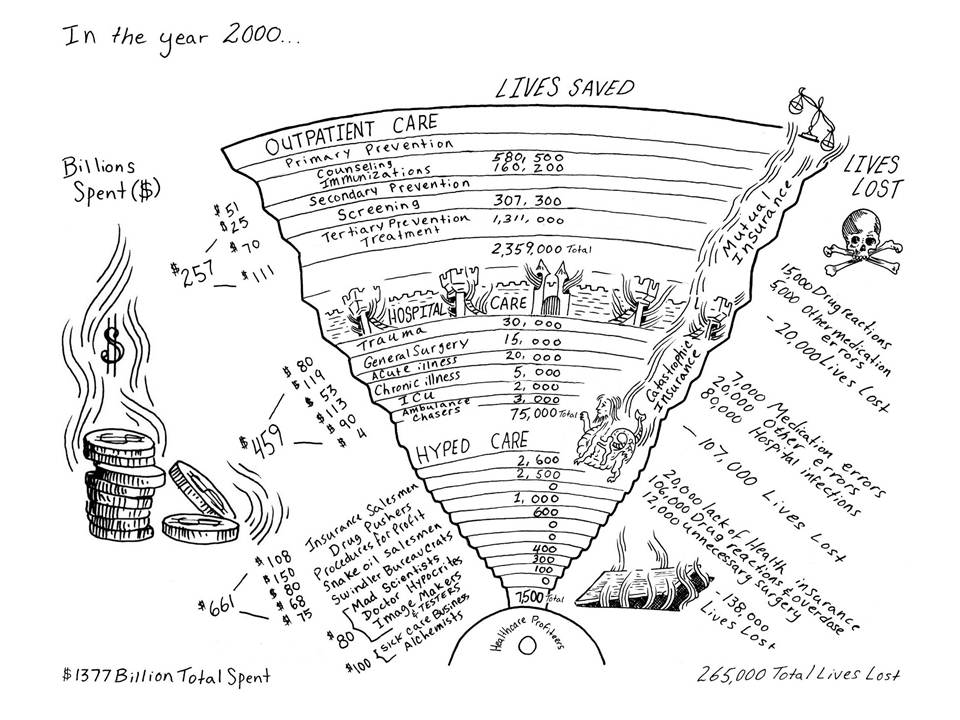 In the year 2000...
LIVES SAVED
OUTPATIENT CARE
Primary Prevention
Counseling 580,500
Immunizations 160,200
Secondary Prevention
Screening 307,300
Tertiary Prevention 1,311,000
Treatment
2,359,000 Total
Billions
Spent ($)
$51
$25
$70
$257
$111
Mutual
Insurance
LIVES
LOST
15,000 Drug reactions
5,000 Other medication
errors
-20,000 Lives Lost
HOSPITAL CARE
Trauma 30,000
General Surgery 15,000
Acute illness 20,000
Chronic illness 5,000
ICU 2,000
Ambulance 3,000
Chasers
75,000 Total
$80
$119
$53
$113
$90
$4
$459
Catastrophic
Insurance
7,000 Medication errors
20,000 Other errors
80,000 Hospital infections
-107,000 Lives Lost
HYPED CARE
2,600
2,500
0
1,000
600
0
0
400
300
100
0
7,500 Total
Insurance Salesmen
Drug Pushers
Procedures for Profit
Snake oil salesmen
Swindler Bureaucrats
Mad Scientists
Doctor Hypocrites
Image Makers
& TESTERS
Sick Care Business,
Alchemists
$108
$150
$80
$68
$75
$661
$80
$100
20,000 lack of Health insurance
106,000 Drug reactions & overdose
12,000 unnecessary surgery
-138,000
Lives Lost
Healthcare Profiteers
$1377 Billion Total Spent
265,000 Total Lives Lost
$